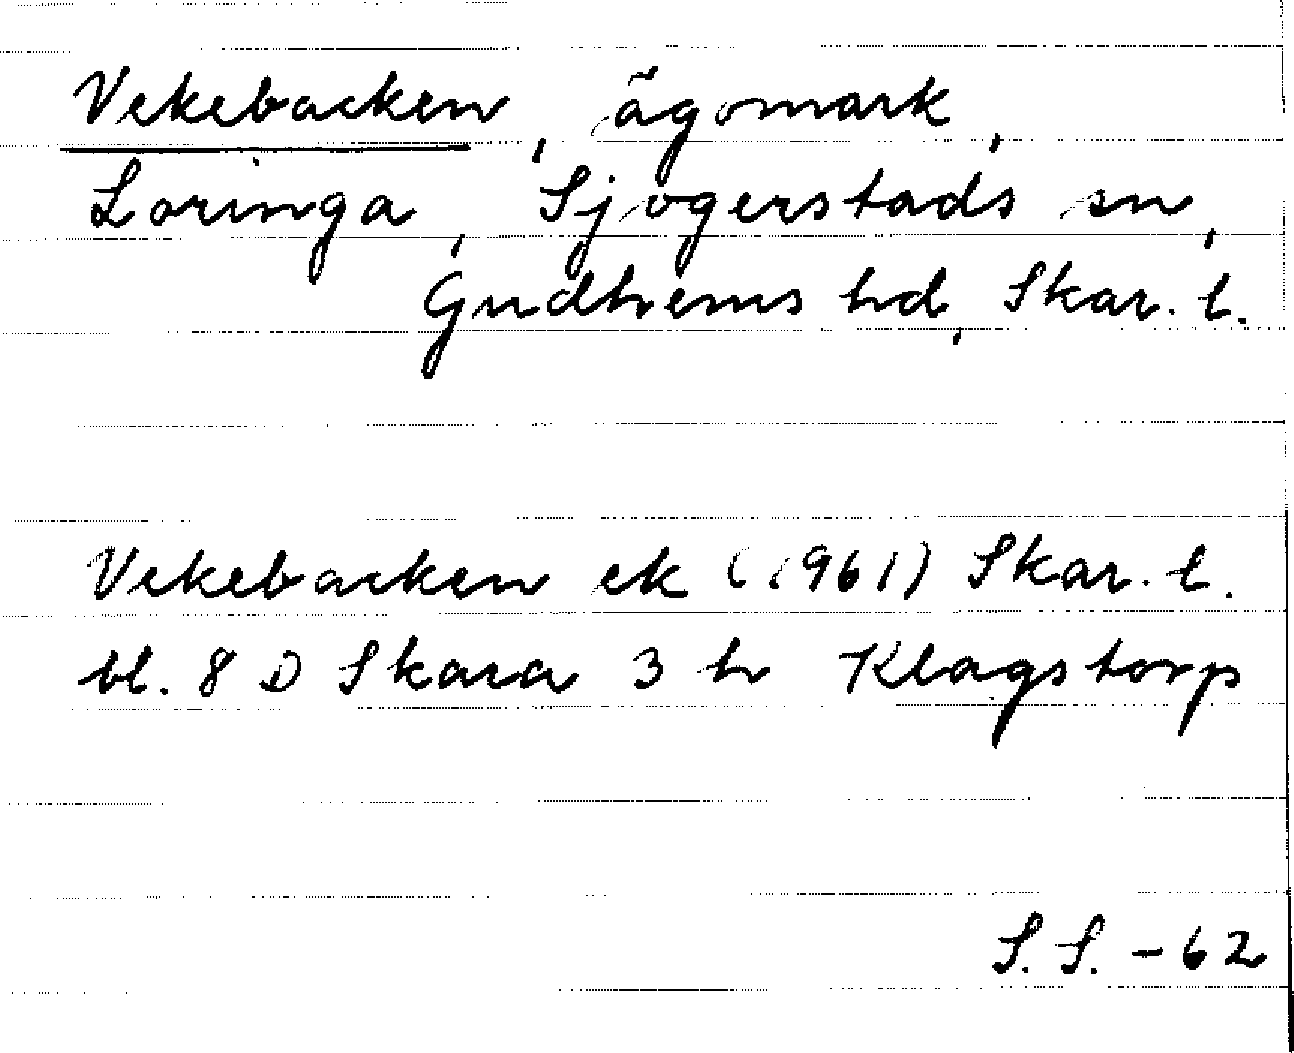 Vekebacken, ägomark,
Loringa, Sjogerstads sn,
Gudhems hd, Skar. l.
Vekebacken ek (1961) Skar. l.
bl. 8 D Skara 3 h Klagstorp
S. S. - 62